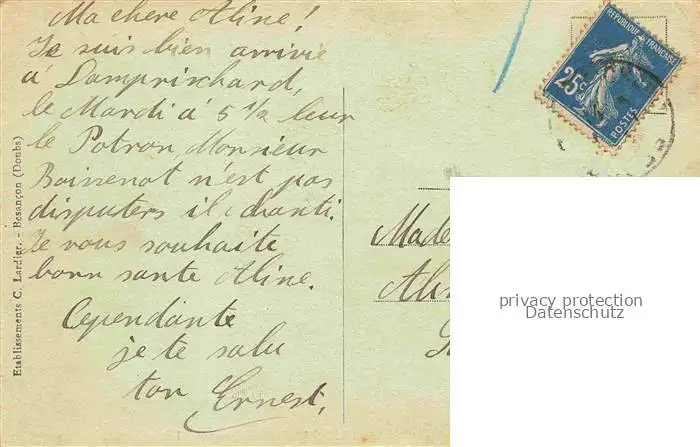 Ma chere Aline!
Je suis bien arrivie
á Damprischard,
le Mardi á 5 1/2 leur
le Potron, Monsieur
Boissenot n'est pas
disputers il chanti.
Je vous souhaite
bonn sante Aline.
Cependante
je te salu
ton Ernest,
Etablissements C. Lardier. - Besançon (Doubs)
REPUBLIQUE FRANÇAISE
25c
POSTES
Made
Alin
privacy protection
Datenschutz